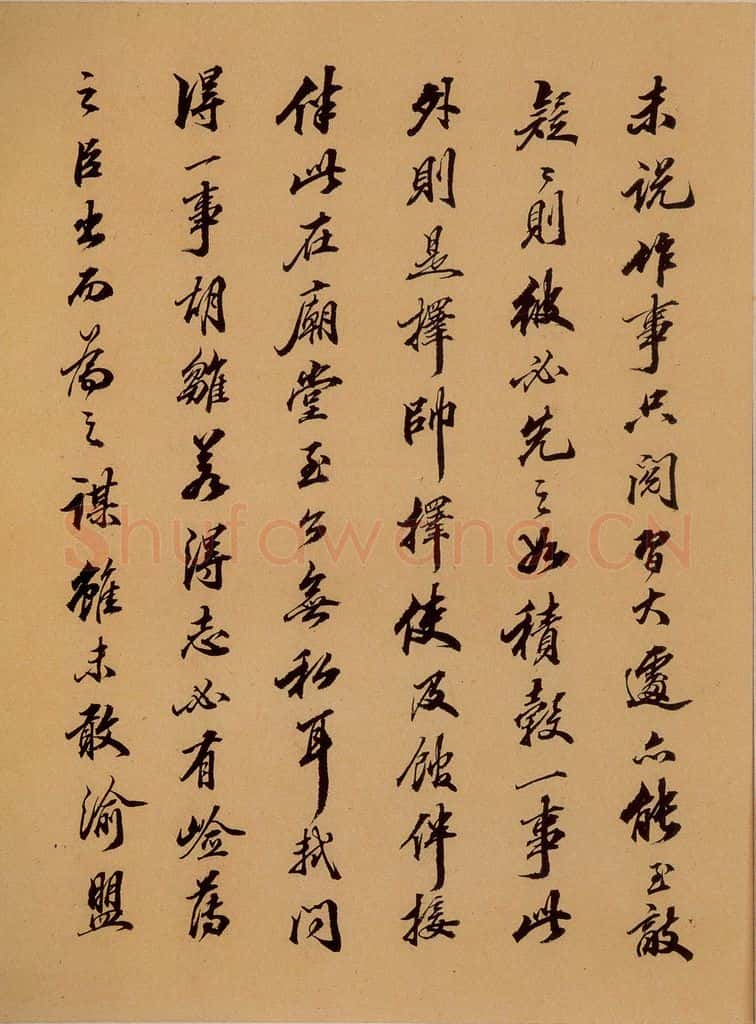 未说作事只阅習大邊亦能至敵
疑〻則彼必先之如積穀一事此
外則是擇帥擇使及館伴接
伴此在廟堂至公無私耳拭問
得一事胡雛若得志必有嶮薄
之臣出而為之謀雖未敢渝盟
Shufawang.CN